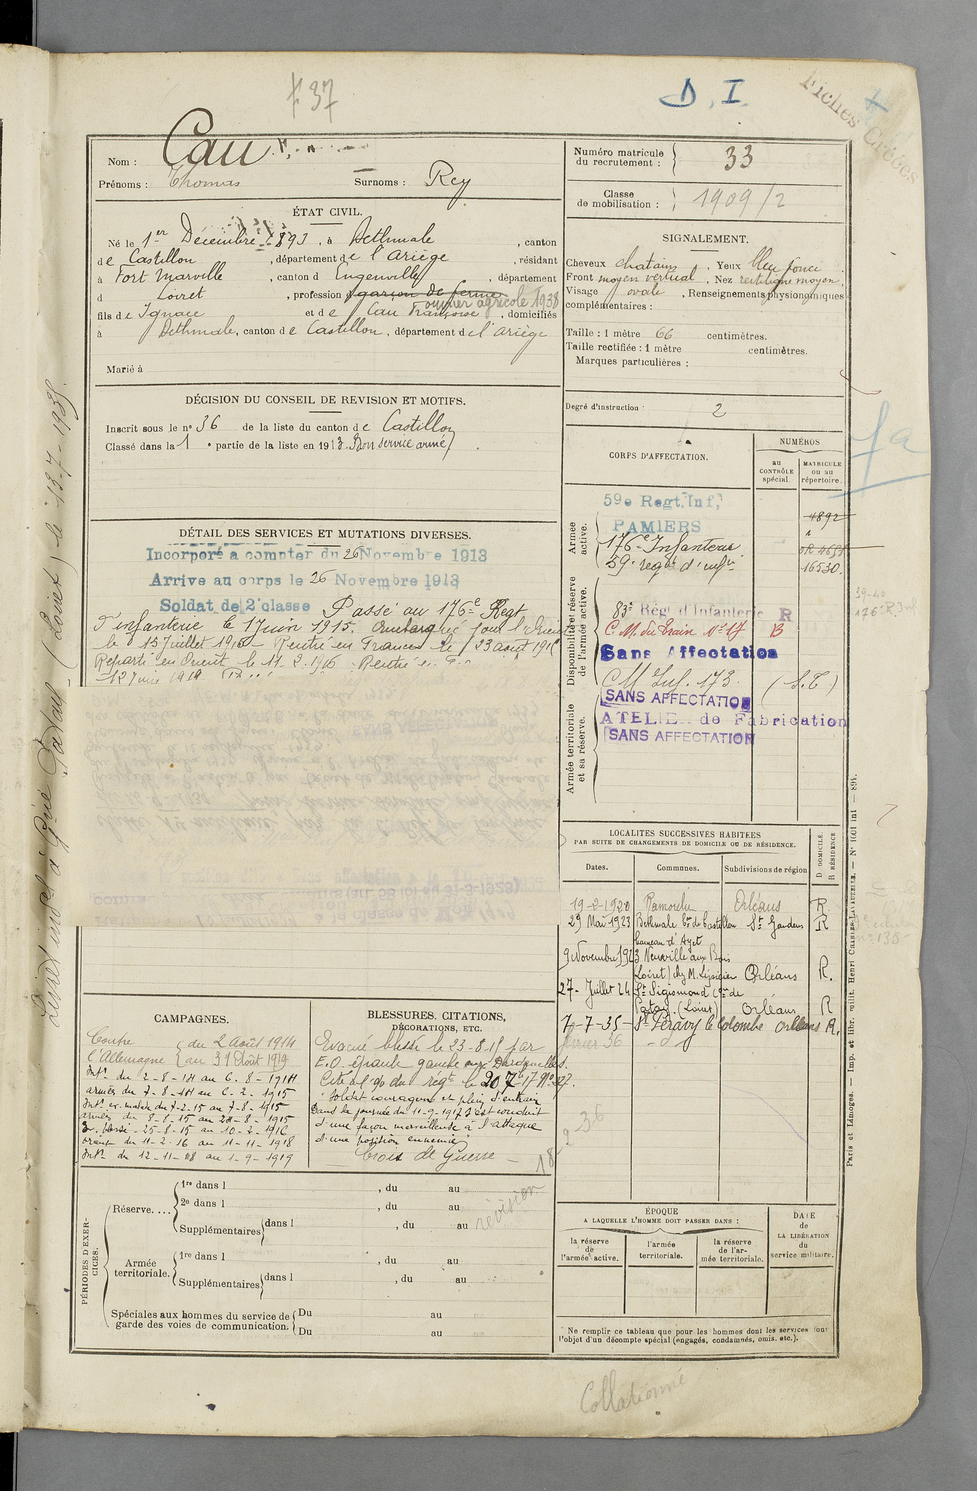 f. 37
D. I.
Fiches Créées
Nom : Cau
Prénoms : Thomas Surnoms : Rey
Numéro matricule du recrutement : 33
Classe de mobilisation : 1909/2
ÉTAT CIVIL.
Né le 1er Décembre 1893, à Bethmale, canton
de Castillon, département de l'Ariège, résidant
à Fort Marville, canton d Engenville, département
d Loiret, profession d garçon de ferme
ouvrier agricole 1938
fils de Ignace et de Cau Françoise, domiciliés
à Bethmale, canton de Castillon, département de l'Ariège
Marié à
SIGNALEMENT.
Cheveux chatains, Yeux bleu foncé
Front moyen vertical, Nez rectiligne moyen,
Visage ovale, Renseignements physionomiques
complémentaires :
Taille : 1 mètre 66 centimètres.
Taille rectifiée : 1 mètre centimètres.
Marques particulières :
Degré d'instruction : 2
DÉCISION DU CONSEIL DE REVISION ET MOTIFS.
Inscrit sous le n° 36 de la liste du canton de Castillon
Classé dans la 1e partie de la liste en 1913. Bon service armé
DÉTAIL DES SERVICES ET MUTATIONS DIVERSES.
Incorporé a compter du 26 Novembre 1913
Arrive au corps le 26 Novembre 1913
Soldat de 2e classe Passé au 176e Regt
d'infanterie le 1 Juin 1915. Embarqué pour l'Orient
le 15 Juillet 1915 Rentré en France le 23 août 1915
Reparti en Orient le 11.2.1916 Rentré en
12 Juin 1919
CORPS D'AFFECTATION.
NUMÉROS
au CONTRÔLE spécial.
MATRICULE ou au répertoire.
Armée active.
59e Regt. Inf,
PAMIERS
4892
176e Infanterie
59e regt d'infie
16530.
Disponibilité et réserve de l'armée active.
83e Rég d'Infanterie R
C.M. du Train N° 17 B
Sans Affectation
C M Inf. 173 (S.E)
SANS AFFECTATION
Armée territoriale et sa réserve.
ATELIER de Fabrication
SANS AFFECTATION
LOCALITÉS SUCCESSIVES HABITÉES
PAR SUITE DE CHANGEMENTS DE DOMICILE OU DE RÉSIDENCE.
Dates. Communes. Subdivisions de région D DOMICILE. R RÉSIDENCE
19-2-1920 Ramoulu Orléans R
29 Mai 1923 Bethmale con de Castillon St Gaudens R
hameau d'Ayet
9 Novembre 1923 Neuville aux Bois
Loiret) chez M. Orléans R.
27 - Juillet 24 St Sigismond Con de
Patay. (Loiret) Orléans R
7-7-35 - St Péravy la Colombe Orléans R,
février 36 - d°
CAMPAGNES.
Contre l'Allemagne du 2 Août 1914 au 31 Août 1919
Intr. du 2-8-14 au 6-8-1914
armées du 7-8-14 au 6-2-1915
Intr. ev. malade du 7-2-15 au 7-8-1915
armées du 8-8-15 au 24-8-1915
Int. blessé - 25-8-15 au 10-2-1916
orient du 11-2-16 au 11-11-1918
Intr. du 12-11-18 au 1-9-1919
BLESSURES. CITATIONS,
DÉCORATIONS, ETC.
Evacué blessé le 23-8-15 par
E.O. épaule gauche aux Dardanelles.
Cité à l'o. du régt le 20 7bre 17 N° 27.
Soldat courageux et plein d'entrain
dans la journée du 11-9-1917 s'est conduit
d'une façon merveilleuse à l'attaque
d'une position ennemie,
Croix de Guerre
révision 18-2-36
PÉRIODES D'EXERCICES.
Réserve....
1re dans l , du au
2e dans l , du au
Supplémentaires dans l , du au
Armée territoriale.
1re dans l , du au
Supplémentaires dans l , du au
Spéciales aux hommes du service de garde des voies de communication.
Du au
Du au
ÉPOQUE
A LAQUELLE L'HOMME DOIT PASSER DANS :
la réserve de l'armée active.
l'armée territoriale.
la réserve de l'armée territoriale.
DATE de LA LIBÉRATION du service militaire.
Ne remplir ce tableau que pour les hommes dont les services font
l'objet d'un décompte spécial (engagés, condamnés, omis, etc.).
Paris et Limoges. — Imp. et libr. milit. Henri CHARLES-LAVAUZELLE.
Collationné